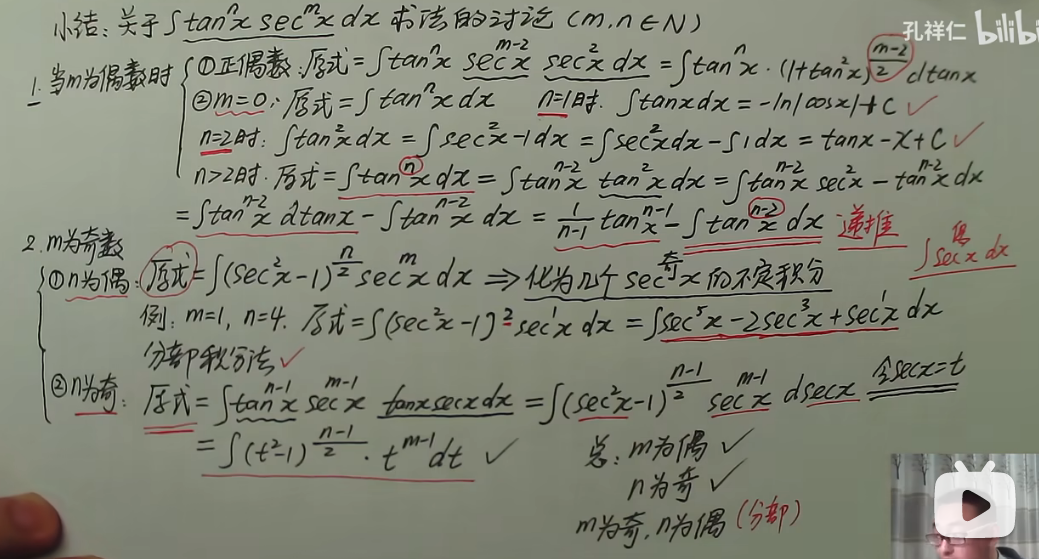 小结：关于∫tanⁿx secᵐx dx 求法的讨论（m,n∈N）
孔祥仁 bilibi
1.当m为偶数时 ①正偶数：原式=∫tanⁿx sec^{m-2}x sec²x dx = ∫tanⁿx·(1+tan²x)^{\frac{m-2}{2}} dtanx
②m=0：原式=∫tanⁿx dx n=1时.∫tanxdx=-ln|cosx|+C ✓
n=2时：∫tan²xdx=∫sec²x-1dx=∫sec²xdx-∫1dx=tanx-x+C ✓
n>2时.原式=∫tanⁿxdx=∫tan^{n-2}x tan²xdx=∫tan^{n-2}x sec²x-tan^{n-2}x dx
=∫tan^{n-2}x dtanx-∫tan^{n-2}x dx=\frac{1}{n-1}tan^{n-1}x-∫tan^{n-2}x dx 递推
∫sec^{偶}x dx
2.m为奇数
①n为偶：原式=∫(sec²x-1)^{\frac{n}{2}}secᵐx dx⇒化为几个sec^{奇}x的不定积分
例：m=1, n=4. 原式=∫(sec²x-1)²sec¹x dx=∫sec⁵x-2sec³x+sec¹x dx
分部积分法✓
②n为奇：原式=∫tan^{n-1}x sec^{m-1}x tanxsecxdx=∫(sec²x-1)^{\frac{n-1}{2}} sec^{m-1}x dsecx 令secx=t
=∫(t²-1)^{\frac{n-1}{2}}·t^{m-1}dt ✓
总：m为偶✓
n为奇✓
m为奇,n为偶(分部)